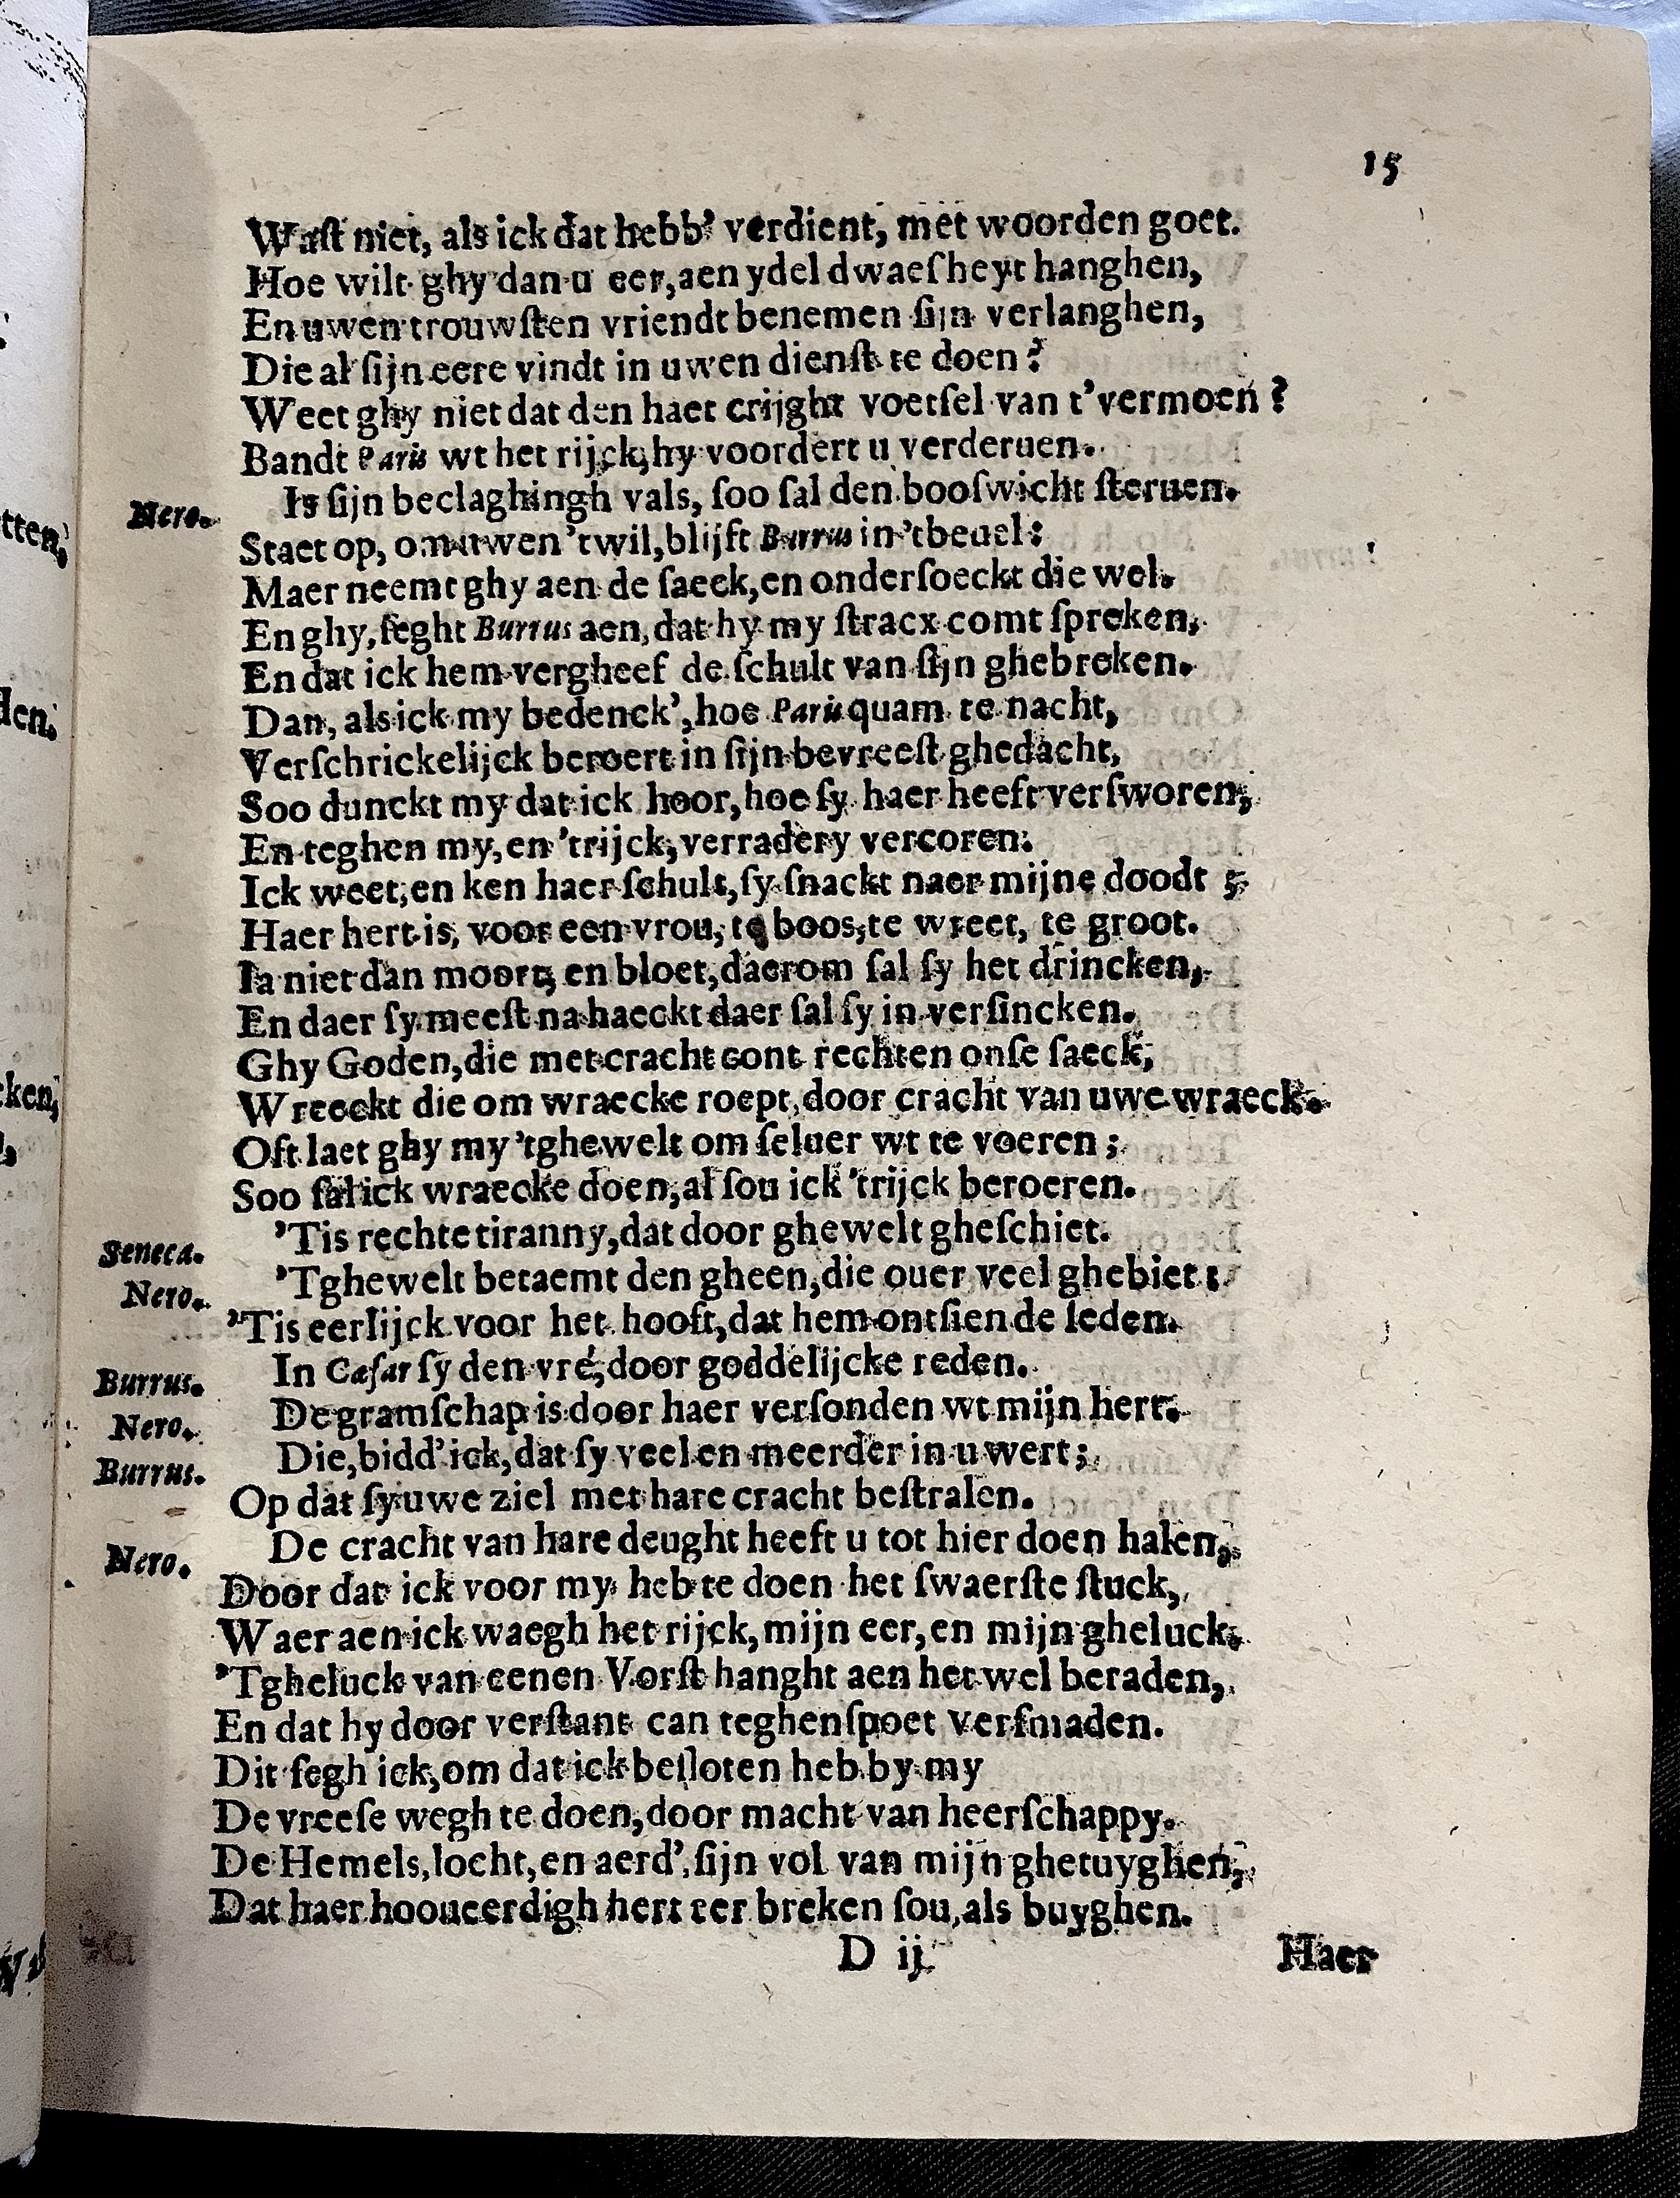 15
Waſt niet, als ick dat hebb' verdient, met woorden goet.
Hoe wilt ghy dan u eer, aen ydel dwaeſheyt hanghen,
En uwen trouwſten vriendt benemen ſijn verlanghen,
Die al ſijn eere vindt in uwen dienſt te doen?
Weet ghy niet dat den haet crijght voetſel van t'vermoen?
Bandt Paris wt het rijck, hy voordert u verderuen.
Nero. Is ſijn beclaghingh vals, ſoo ſal den booſwicht ſteruen.
Staet op, om uwen 'twil, blijft Burrus in 'tbeuel:
Maer neemt ghy aen de ſaeck, en onderſoeckt die wel.
En ghy, ſeght Burrus aen, dat hy my ſtracx comt ſpreken,
En dat ick hem vergheef de ſchult van ſijn ghebreken.
Dan, als ick my bedenck', hoe Paris quam te nacht,
Verſchrickelijck beroert in ſijn bevreeſt ghedacht,
Soo dunckt my dat ick hoor, hoe ſy haer heeft verſworen,
En teghen my, en 'trijck, verradery vercoren:
Ick weet, en ken haer ſchult, ſy ſnackt naer mijne doodt;
Haer hert is, voor een vrou, te boos, te wreet, te groot.
Ia niet dan moort, en bloet, daerom ſal ſy het drincken,
En daer ſy meeſt na haeckt daer ſal ſy in verſincken.
Ghy Goden, die met cracht cont rechten onſe ſaeck,
Wreeckt die om wraecke roept, door cracht van uwe wraeck.
Oft laet ghy my 'tghewelt om ſeluer wt te voeren;
Soo ſal ick wraecke doen, al ſou ick 'trijck beroeren.
Seneca. 'Tis rechte tiranny, dat door ghewelt gheſchiet.
Nero. 'Tghewelt betaemt den gheen, die ouer veel ghebiet:
'Tis eerlijck voor het hooft, dat hem ontſien de leden.
Burrus. In Cæſar ſy den vré, door goddelijcke reden.
Nero. De gramſchap is door haer verſonden wt mijn hert.
Burrus. Die, bidd' ick, dat ſy veel en meerder in u wert;
Op dat ſy uwe ziel met hare cracht beſtralen.
Nero. De cracht van hare deught heeft u tot hier doen halen,
Door dat ick voor my heb te doen het ſwaerſte ſtuck,
Waer aen ick waegh het rijck, mijn eer, en mijn gheluck.
'Tgheluck van eenen Vorſt hanght aen het wel beraden,
En dat hy door verſtant can teghenſpoet verſmaden.
Dit ſegh ick, om dat ick beſloten heb by my
De vreeſe wegh te doen, door macht van heerſchappy.
De Hemels, locht, en aerd', ſijn vol van mijn ghetuyghen,
Dat haer hooueerdigh hert eer breken ſou, als buyghen.
D ij
Haer